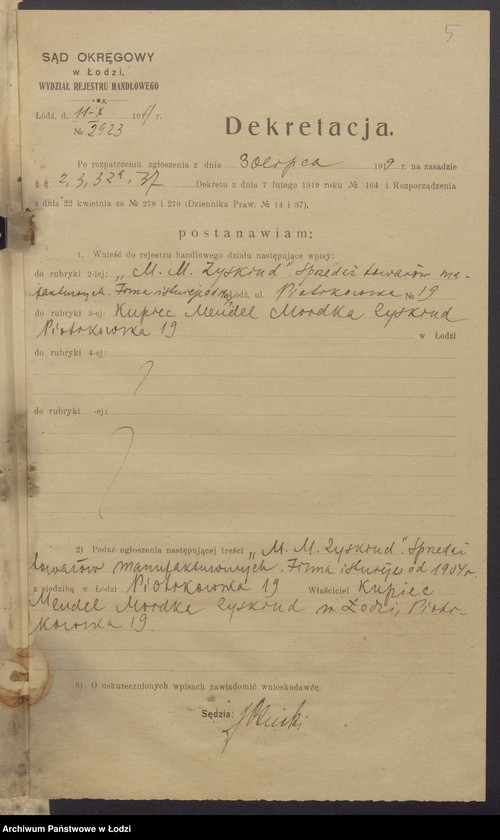 5
SĄD OKRĘGOWY
w Łodzi.
WYDZIAŁ REJESTRU HANDLOWEGO
Łódź, d. 11-X 191 r.
№ 2923
Dekretacja.
Po rozpatrzeniu zgłoszenia z dnia 3 sierpca 1919 r. na zasadzie
§ §. 2, 3, 32ª, 37 Dekretu z dnia 7 lutego 1919 roku № 164 i Rozporządzenia
z dnia 22 kwietnia za № 278 i 279 (Dziennika Praw. № 14 i 37),
postanawiam:
1. Wnieść do rejestru handlowego działu następujące wpisy:
do rubryki 2-iej: „M. M. Zyskrud". Sprzedaż towarów ma-
nufakturowych. Firma istnieje od Łódź, ul. Piotrkowska № 19
do rubryki 3-ej: Kupiec Mendel Mordka Zyskrud
Piotrkowska 19 w Łodzi
do rubryki 4-ej:
do rubryki -ej:
2) Podać ogłoszenia następującej treści „M. M. Zyskrud". Sprzedaż
towarów manufakturowych. Firma istnieje od 1904 r
z siedzibą w Łodzi Piotrkowska 19 Właściciel Kupiec
Mendel Mordka Zyskrud w Łodzi, Piotr-
kowska 19.
3) O uskutecznionych wpisach zawiadomić wnioskodawcę.
Sędzia:
Archiwum Państwowe w Łodzi